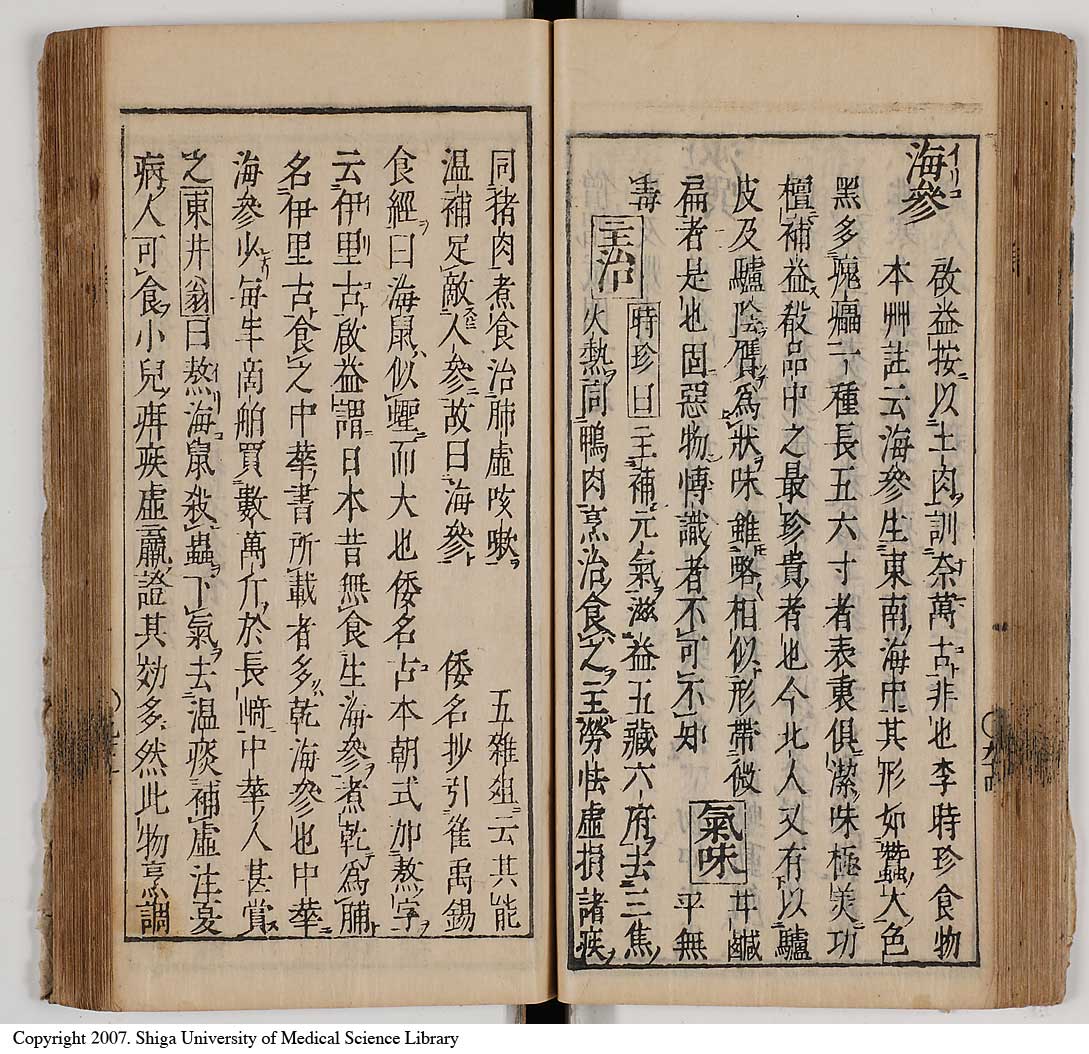 海參 啟益按以土肉訓奈萬古非也李時珍食物
本艸註云海參生東南海中其形如蠶大色
黑多瘣癗一種長五六寸者表裏俱潔味極美功
擅補益殺品中之最珍貴者也今北人又有以驢
皮及驢陰贋爲狀味雖略相似形帶微
扁者是也固惡物愽識者不可不知 氣味 甘鹹平無
毒 主治 時珍曰主補元氣滋益五藏六府去三焦
火熱同鴨肉烹治食之主勞怯虛損諸疾
同猪肉煮食治肺虛咳嗽 五雜俎云其能
温補足敵人參故曰海參 倭名抄引崔禹錫
食經曰海鼠似蛭而大也倭名古本朝式加熬字
云伊里古啟益謂日本昔無食生海參煮乾爲脯
名伊里古食之中華書所載者多乾海參也中華
海參少每年商舶買數萬斤於長﨑中華人甚賞
之 東井翁曰熬海鼠殺蟲下氣去温痰補虛注夏
病人可食小兒疳疾虛羸證其効多然此物烹調
Copyright 2007. Shiga University of Medical Science Library